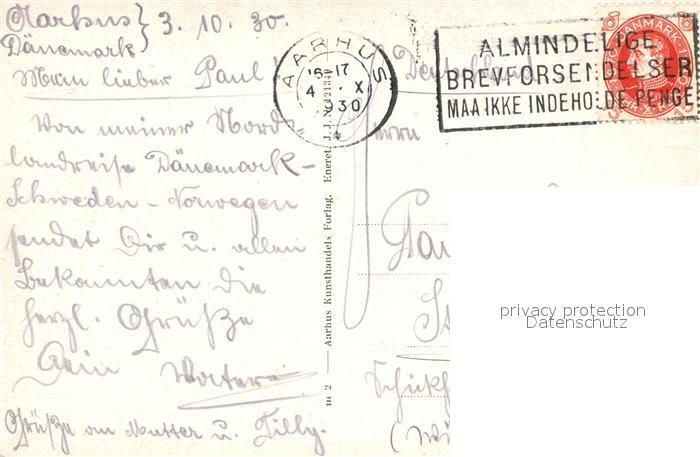 Aarhus } 3. 10. 30.
Dänemark
Mein lieber Paul!
Von meiner Nord-
landreise Dänemark-
Schweden - Norwegen
sendet Dir u. allen
Bekannten die
herzl. Grüße
Dein
Grüße an Mutter u. Tilly.
AARHUS
16-17
4 . X
30
*
ALMINDELIGE
BREVFORSENDELSER
MAA IKKE INDEHOLDE PENGE
DANMARK
Deutschland
Herrn
m 2 — Aarhus Kunsthandels Forlag. Eneret. J. J. N.
privacy protection
Datenschutz